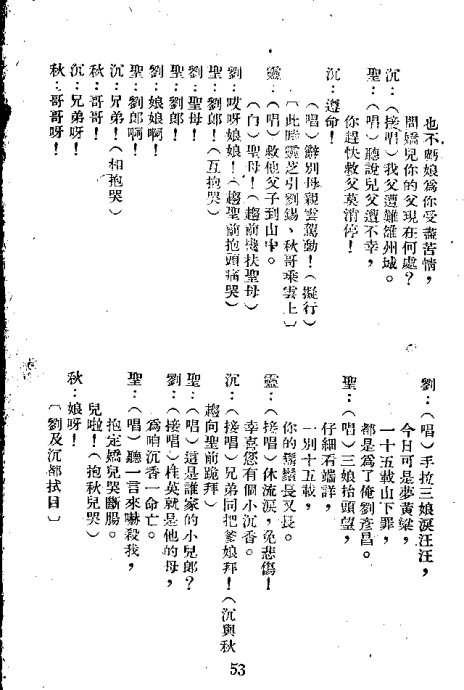 也不虧娘爲你受盡苦情，
問嬌兒你的父現在何處？
沉：（接唱）我父遭難雒州城。
聖：（唱）聽說兒父遭不幸，
你趕快救父莫消停！
沉：遵命！
（唱）辭別母親雲駕動！（擬行）
〔此時靈芝引劉錫、秋哥乘雲上〕
靈：（唱）救他父子到山中。
（白）聖母！（趨前攙扶聖母）
劉：哎呀娘娘！（趨聖前抱頭痛哭）
聖：劉郎！（互抱哭）
劉：聖母！
聖：劉郎！
劉：娘娘啊！
聖：劉郎啊！
沉：兄弟！（相抱哭）
秋：哥哥！
沉：兄弟呀！
秋：哥哥呀！
劉：（唱）手拉三娘淚汪汪，
今日可是夢黃粱，
一十五載山下罪，
都是爲了俺劉彥昌。
聖：（唱）三娘抬頭望，
仔細看端詳，
一別十五載，
你的鬍鬚長又長。
靈：（接唱）休流淚，免悲傷！
幸喜您有個小沉香。
沉：（接唱）兄弟同把爹娘拜！（沉與秋
趨向聖前跪拜）
聖：（唱）這是誰家的小兒郎？
劉：（接唱）桂英就是他的母，
爲咱沉香一命亡。
聖：（唱）聽一言來嚇殺我，
抱定嬌兒哭斷腸。
兒啦！（抱秋兒哭）
秋：娘呀！
〔劉及沉都拭目〕
53